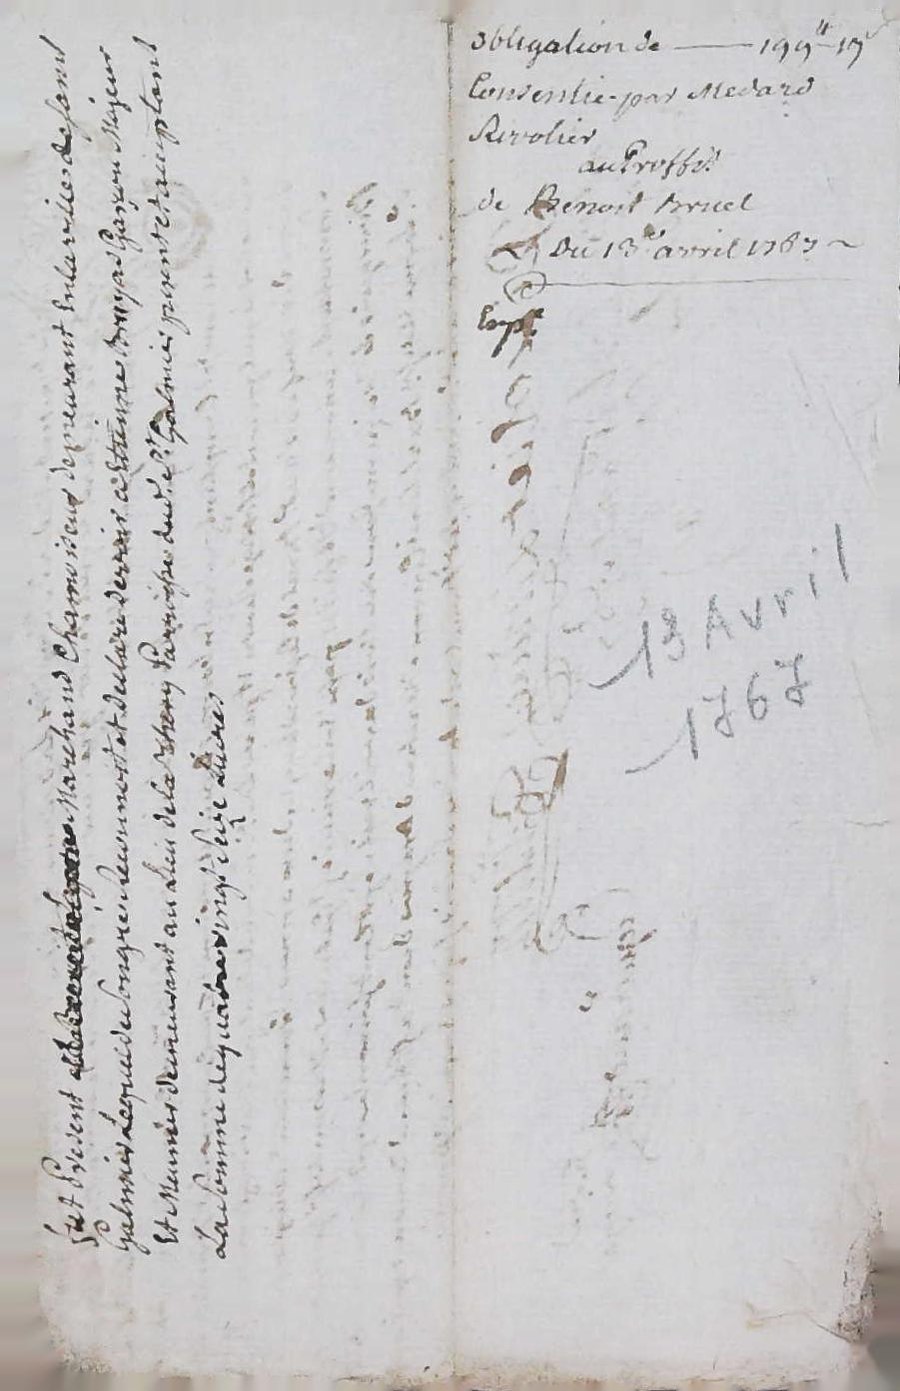 obligation de —— 199# 17s
Consentie par Medard
Rivolier
au Proffit
de Benoit Bruel
Du 13e avril 1767 ~
Expé
13 Avril
1767
fut Present Marchand Chamoiseur demeurant En la ville de saint
Galmier Lequel de son gré a reconnu et declaré devoir a Estienne Bruyas Garçon Majeur
Et Meunier demeurant au Lieu de la Thory Parroisse dud. St Galmier present et acceptant
La Somme de quatre vingt seize Livres